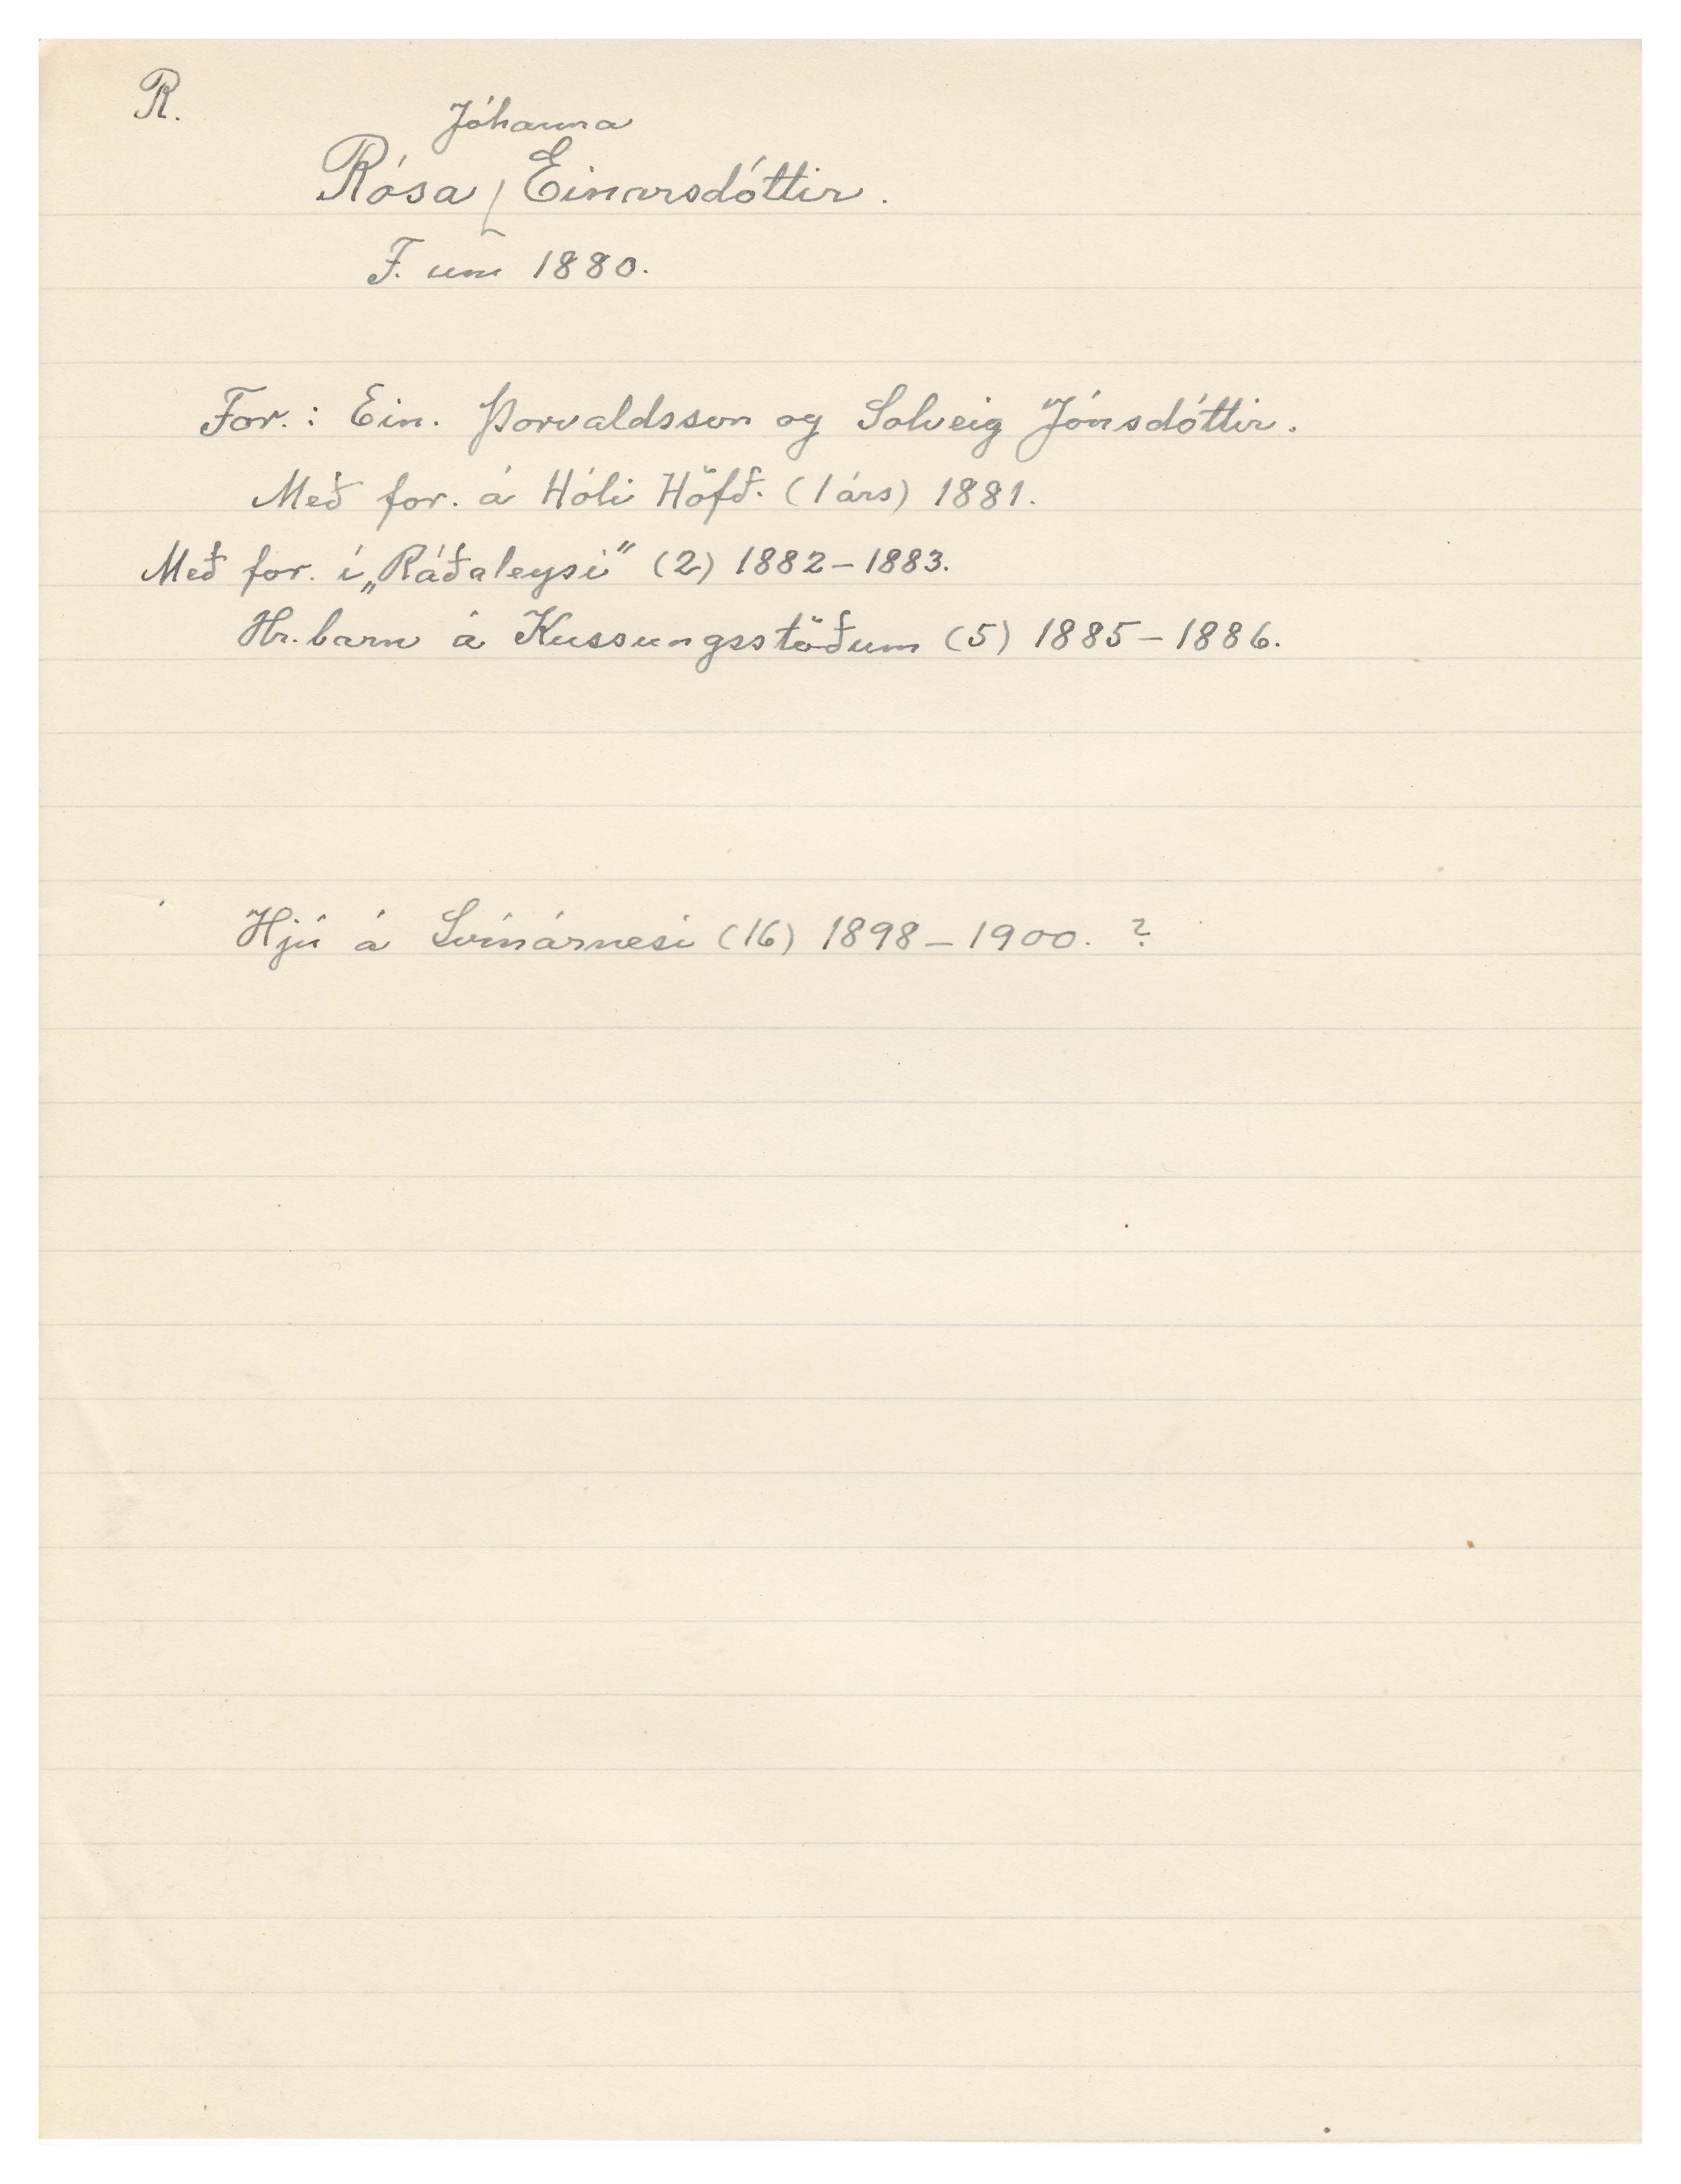 R.
Jóhanna
Rósa / Einarsdóttir.
F. um 1880.
For.: Ein. Þorvaldsson og Solveig Jónsdóttir.
Með for. á Hóli Höfð. (1 árs) 1881.
Með for. í „Ráðaleysi“ (2) 1882-1883.
Hr. barn á Kussungsstöðum (5) 1885-1886.
Hjú á Svínárnesi (16) 1898-1900. ?